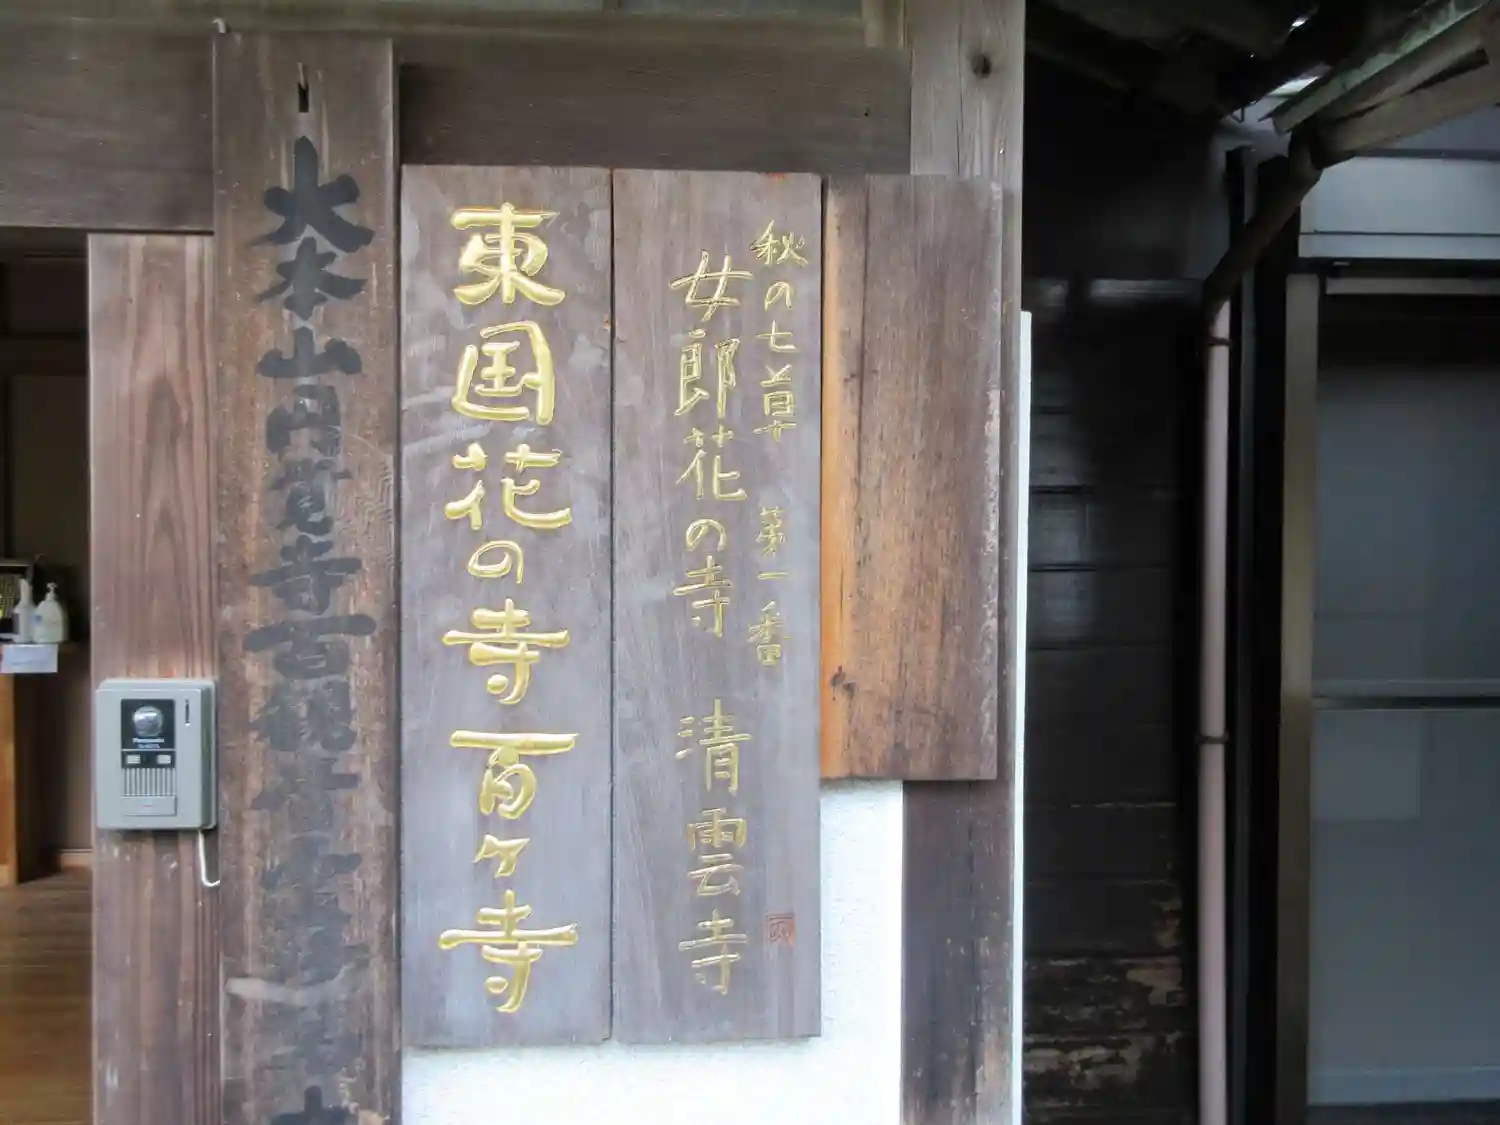 秋の七草　第一番
女郎花の寺　清雲寺
東国花の寺百ヶ寺
大本山円覚寺百観音霊場
Panasonic